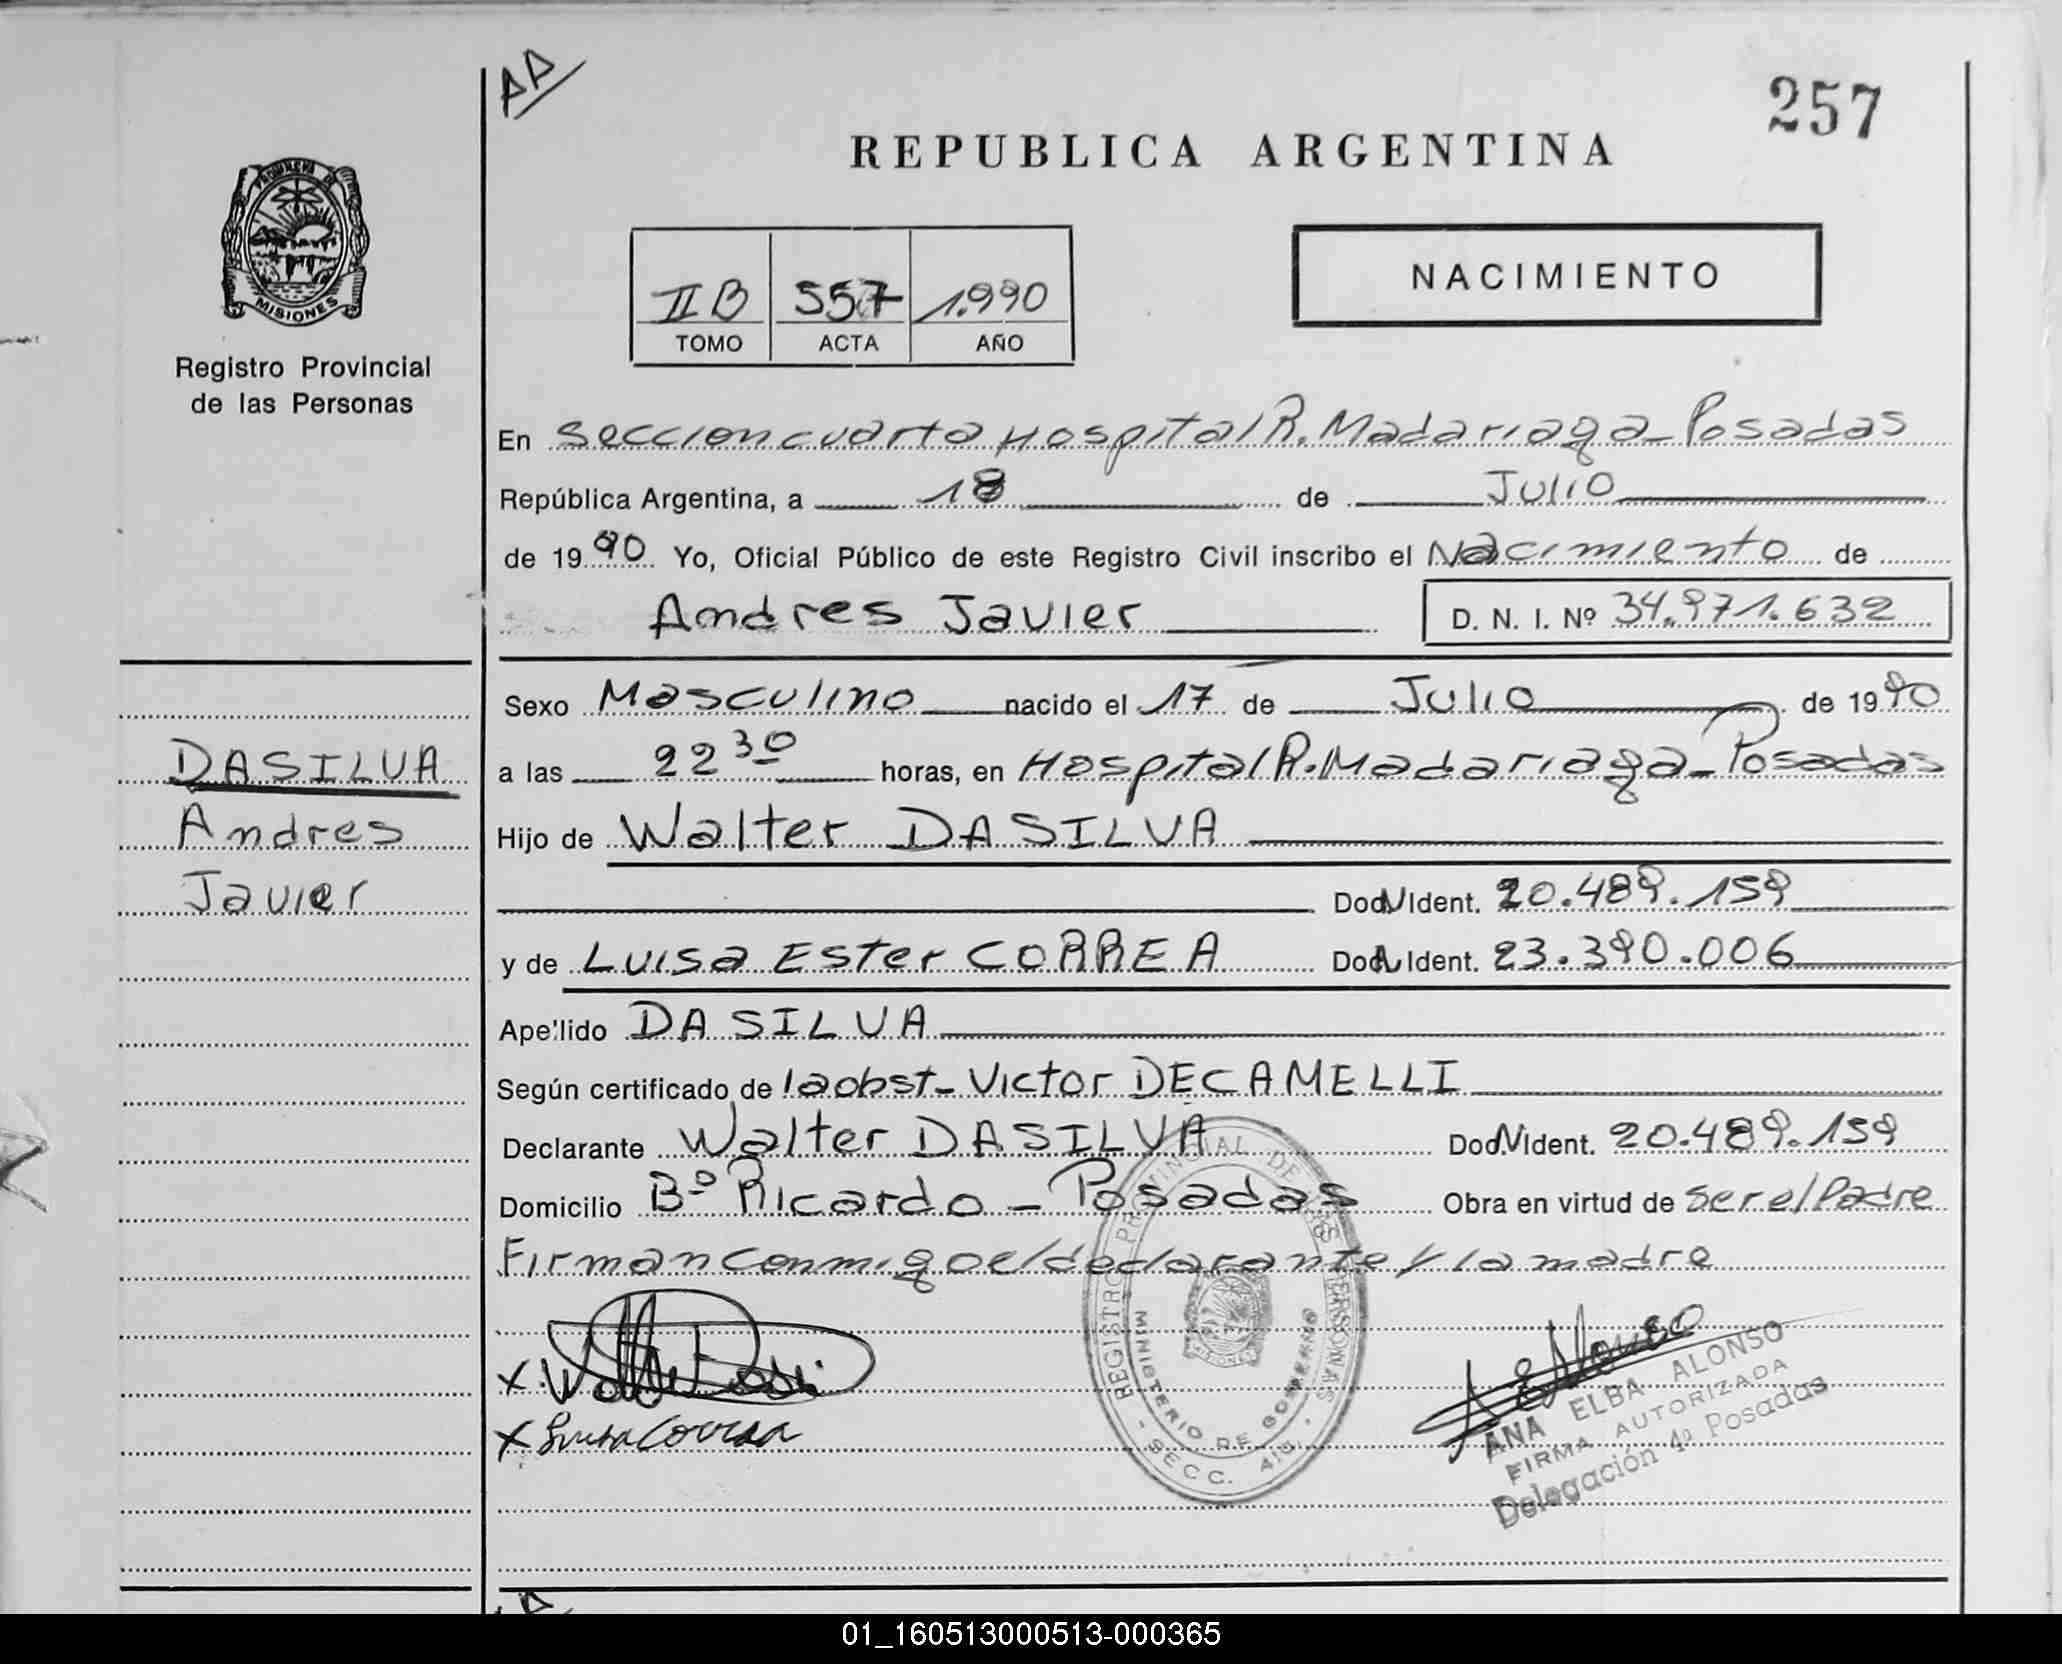 AA
257
REPUBLICA ARGENTINA
PROVINCIA DE
MISIONES
Registro Provincial
de las Personas
II B 557 1.990
TOMO ACTA AÑO
NACIMIENTO
En Seccion cuarta Hospital R. Madariaga - Posadas
República Argentina, a 18 de Julio
de 1990 Yo, Oficial Público de este Registro Civil inscribo el Nacimiento de
Andres Javier D. N. I. Nº 34.971.632
Sexo Masculino nacido el 17 de Julio de 1990
DASILVA
Andres
Javier
a las 22 30 horas, en Hospital R. Madariaga - Posadas
Hijo de Walter DASILVA
Doc. Ident. 20.489.159
y de Luisa Ester CORREA Doc. Ident. 23.390.006
Apellido DASILVA
Según certificado de la obst- Victor DECAMELLI
Declarante Walter DASILVA Doc. Ident. 20.489.159
Domicilio Bº Ricardo - Posadas Obra en virtud de ser el Padre
Firman conmigo el declarante y la madre
x Luisa Correa
REGISTRO PROVINCIAL DE LAS PERSONAS
MINISTERIO DE GOBIERNO
MISIONES
- SECC. 4ta. -
ANA ELBA ALONSO
FIRMA AUTORIZADA
Delegación 4ª Posadas
01_160513000513-000365